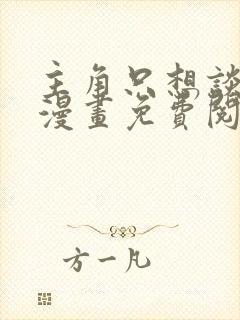 主角只想談
漫畫免費閱
方一凡